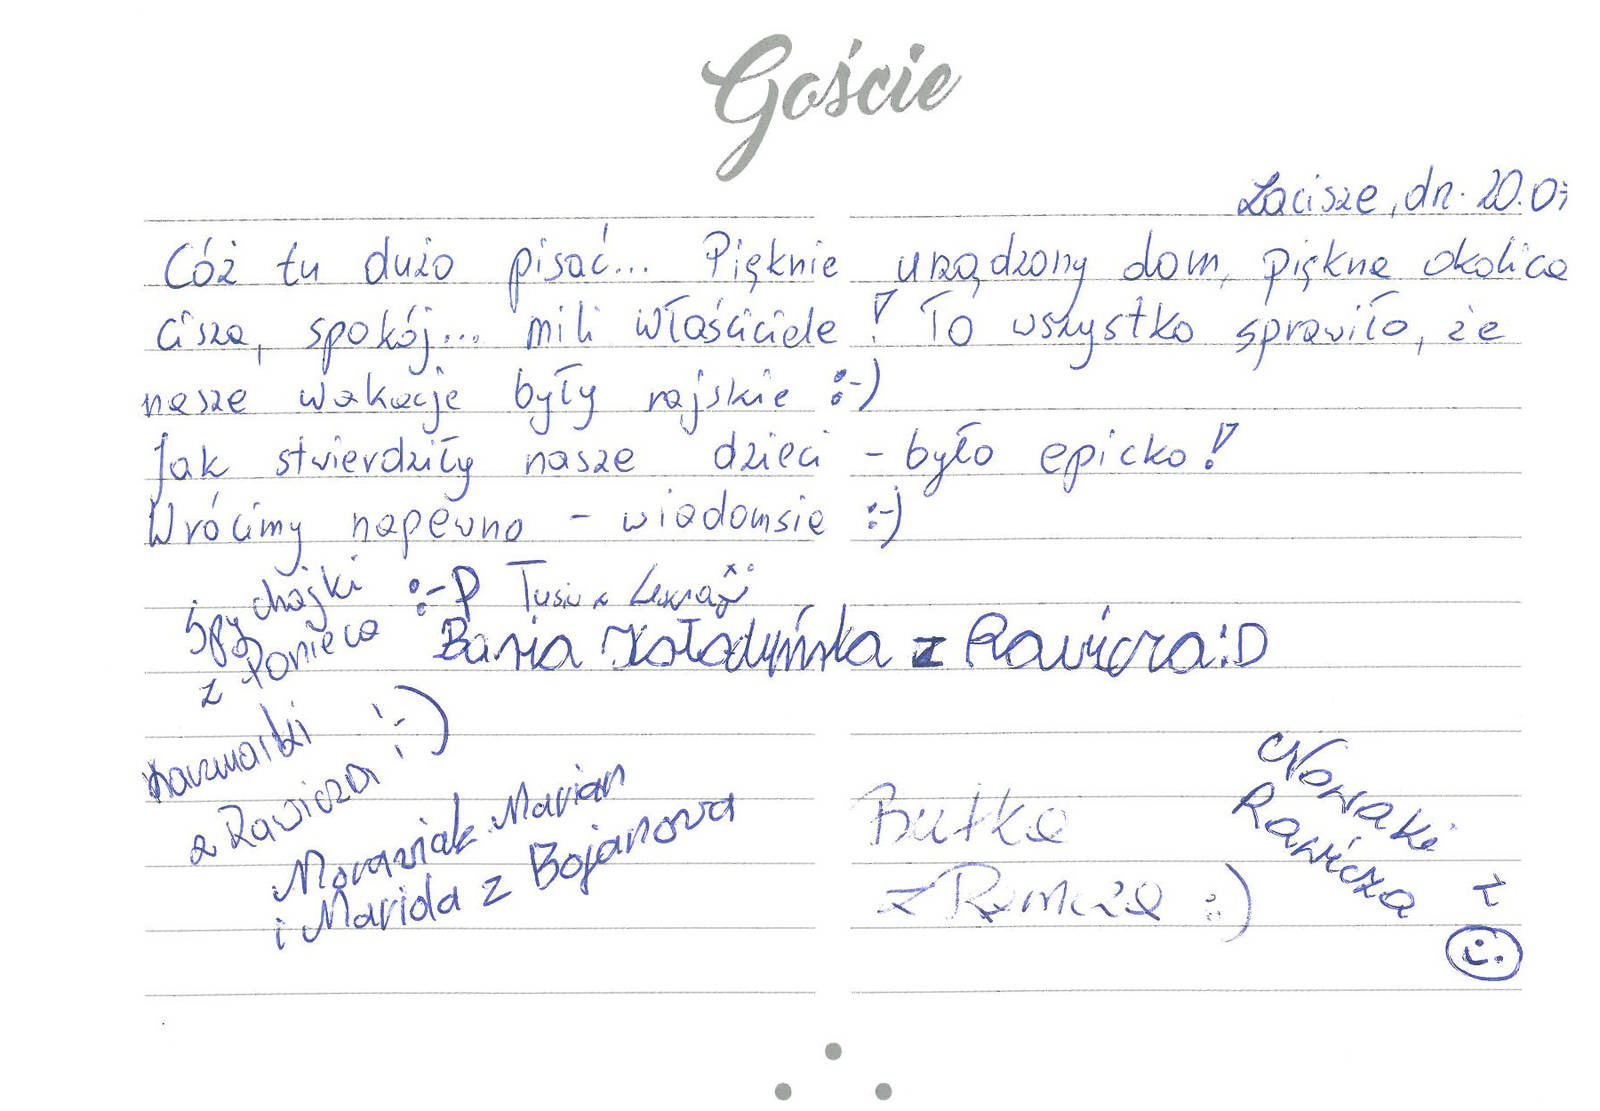 Goście
Zacisze, dn. 20.07
Cóż tu dużo pisać... Pięknie urządzony dom, piękna okolica
cisza, spokój... mili właściciele! To wszystko sprawiło, że
nasze wakacje były rajskie :-)
Jak stwierdziły nasze dzieci - było epicko!
Wrócimy napewno - wiadomsie :-)
Spychajki :-P
z Ponieca
Tusia z
Basia Kołodyńska z Rawicza :D
Kaczmarki
z Rawicza :-)
Morawiak Marian
i Marida z Bojanowa
Butka
z :)
Nowaki z
Rawicza